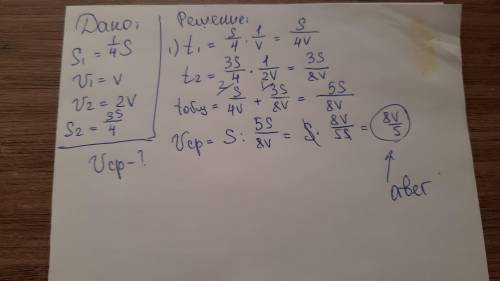 Дано:
S₁ = 1/4 S
V₁ = V
V₂ = 2V
S₂ = 3S/4
Vср - ?
Решение:
1) t₁ = S/4 · 1/V = S/4V
t₂ = 3S/4 · 1/2V = 3S/8V
tобщ = ²⁾S/4V + ¹⁾3S/8V = 5S/8V
Vср = S : 5S/8V = S · 8V/5S = 8V/5
ответ